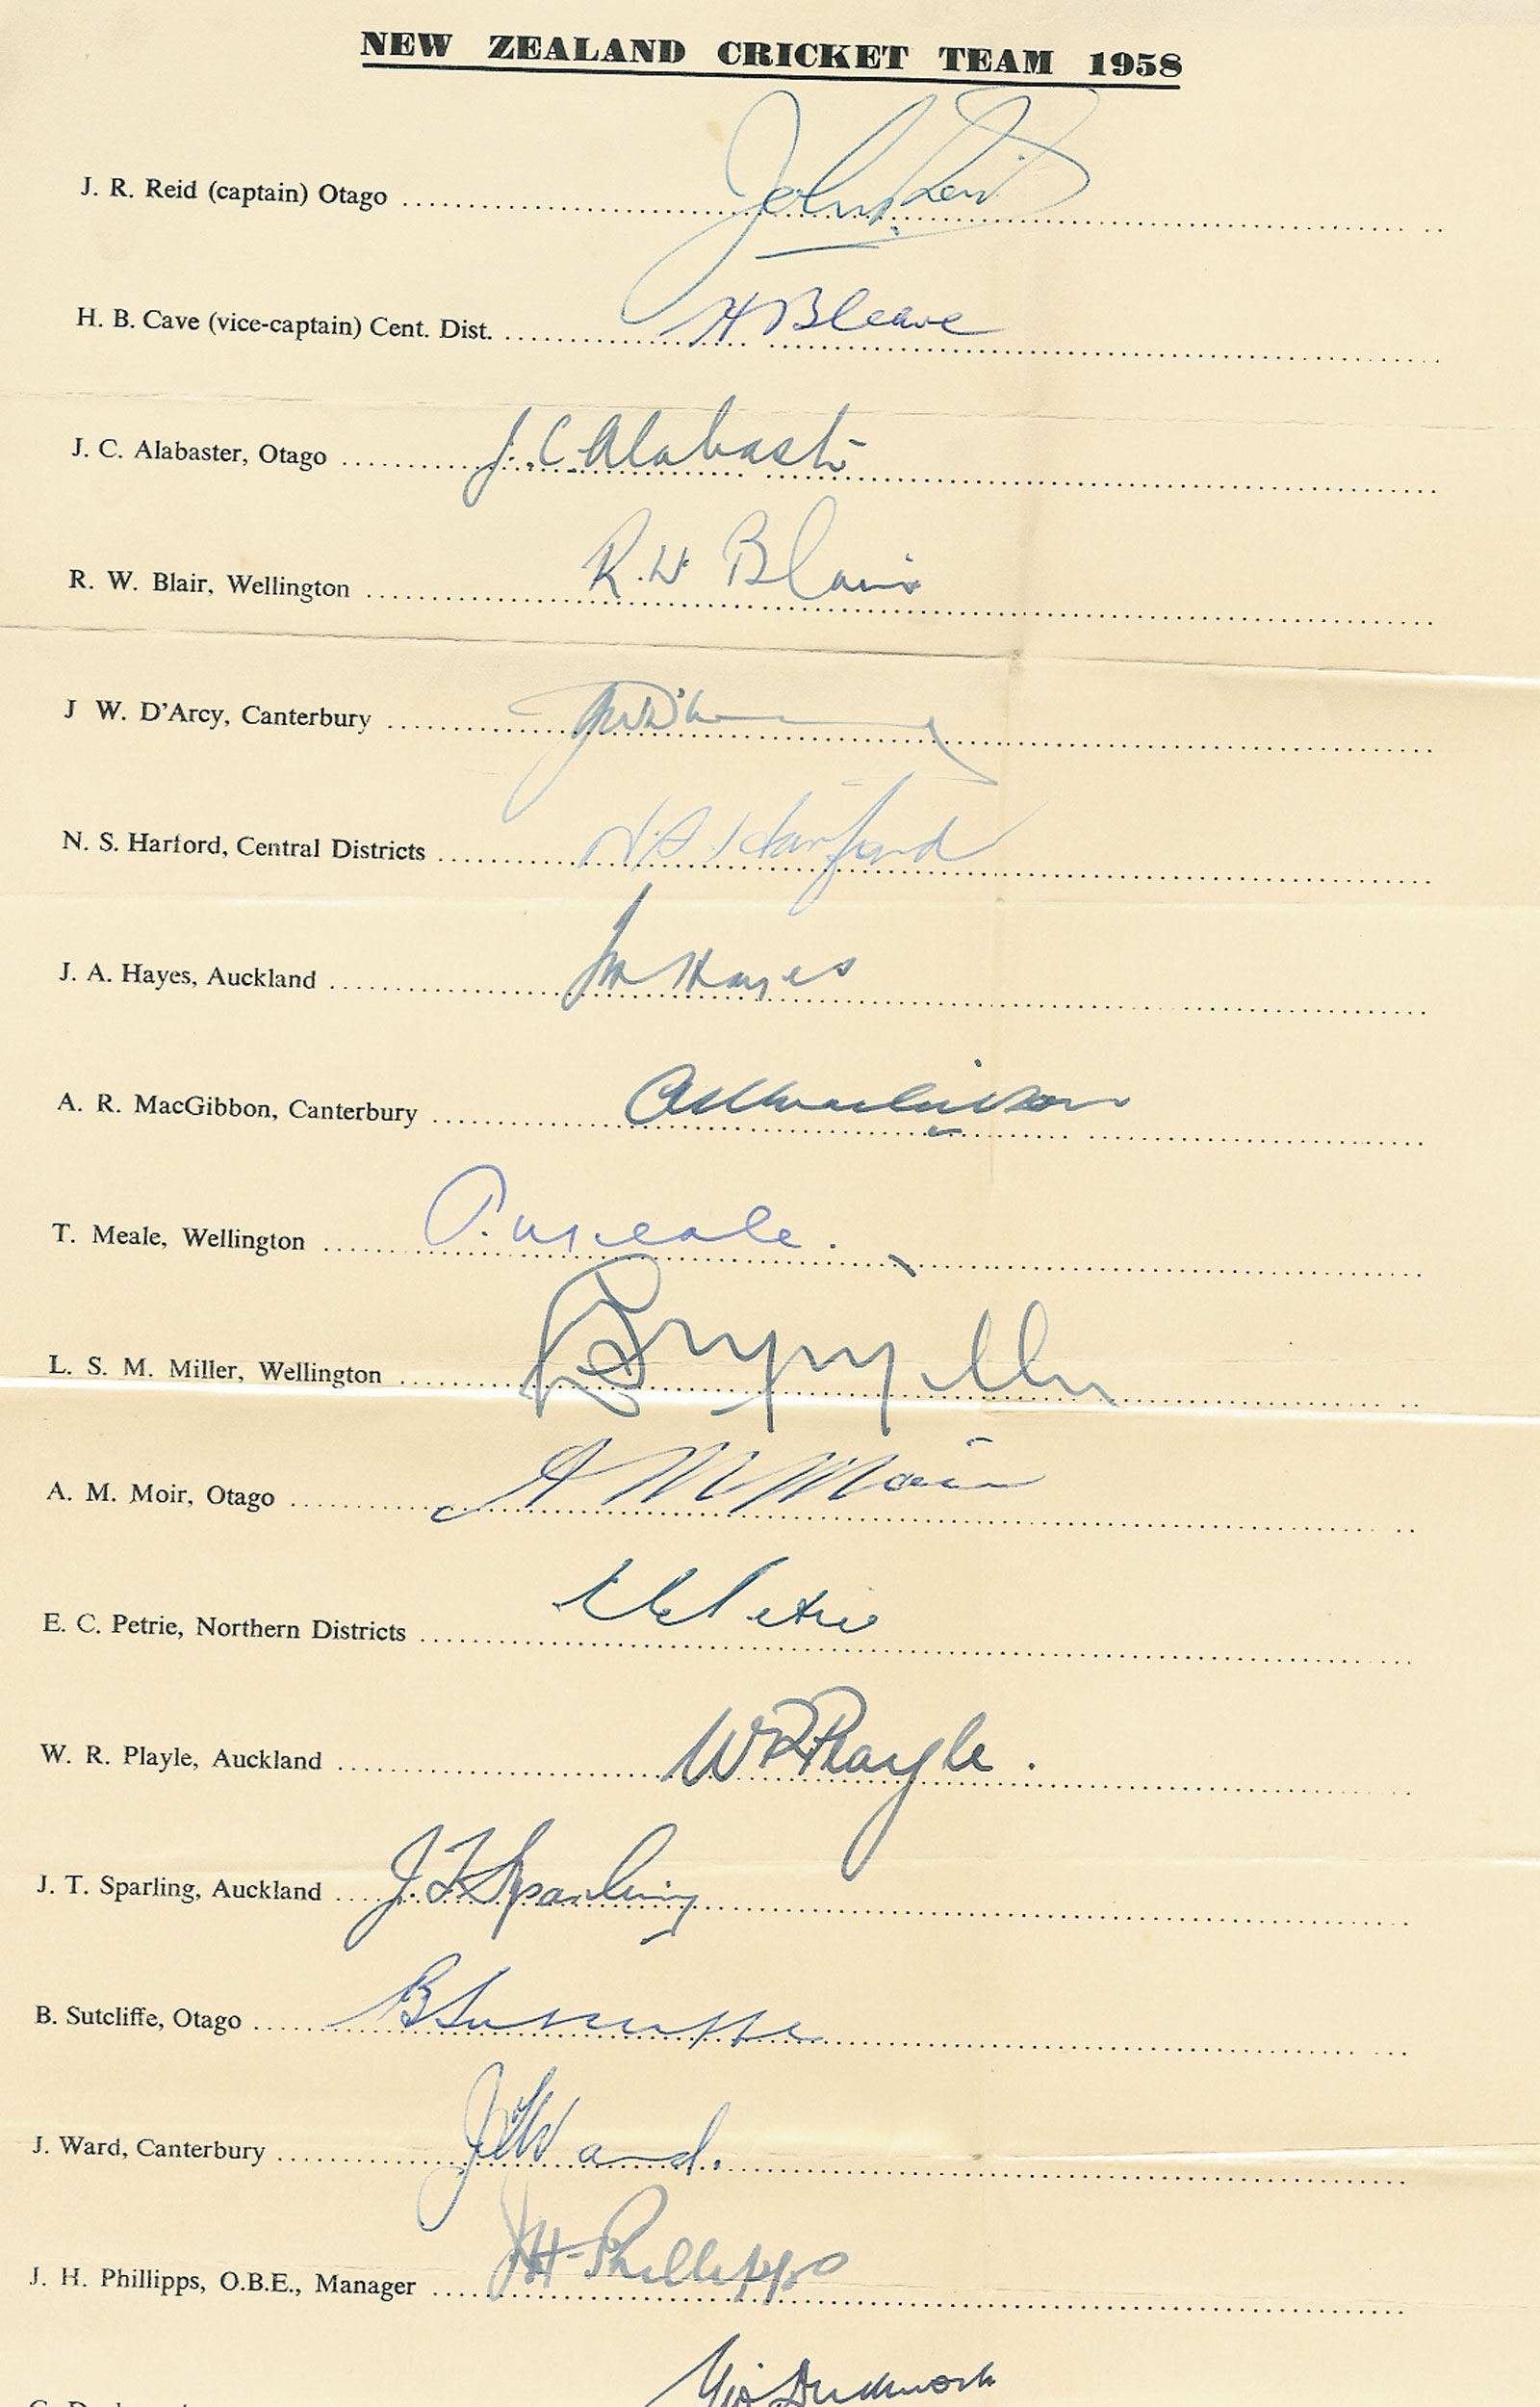 NEW ZEALAND CRICKET TEAM 1958
J. R. Reid (captain) Otago John R Reid
H. B. Cave (vice-captain) Cent. Dist. H B Cave
J. C. Alabaster, Otago J. C Alabaster
R. W. Blair, Wellington R. W Blair
J W. D'Arcy, Canterbury J W D'Arcy
N. S. Harford, Central Districts N. S Harford
J. A. Hayes, Auckland J A Hayes
A. R. MacGibbon, Canterbury A R MacGibbon
T. Meale, Wellington T. Meale.
L. S. M. Miller, Wellington L S M Miller
A. M. Moir, Otago A M Moir
E. C. Petrie, Northern Districts E C Petrie
W. R. Playle, Auckland W R Playle.
J. T. Sparling, Auckland J. T. Sparling
B. Sutcliffe, Otago B Sutcliffe
J. Ward, Canterbury J T Ward.
J. H. Phillipps, O.B.E., Manager J H Phillipps
Geo Duckworth